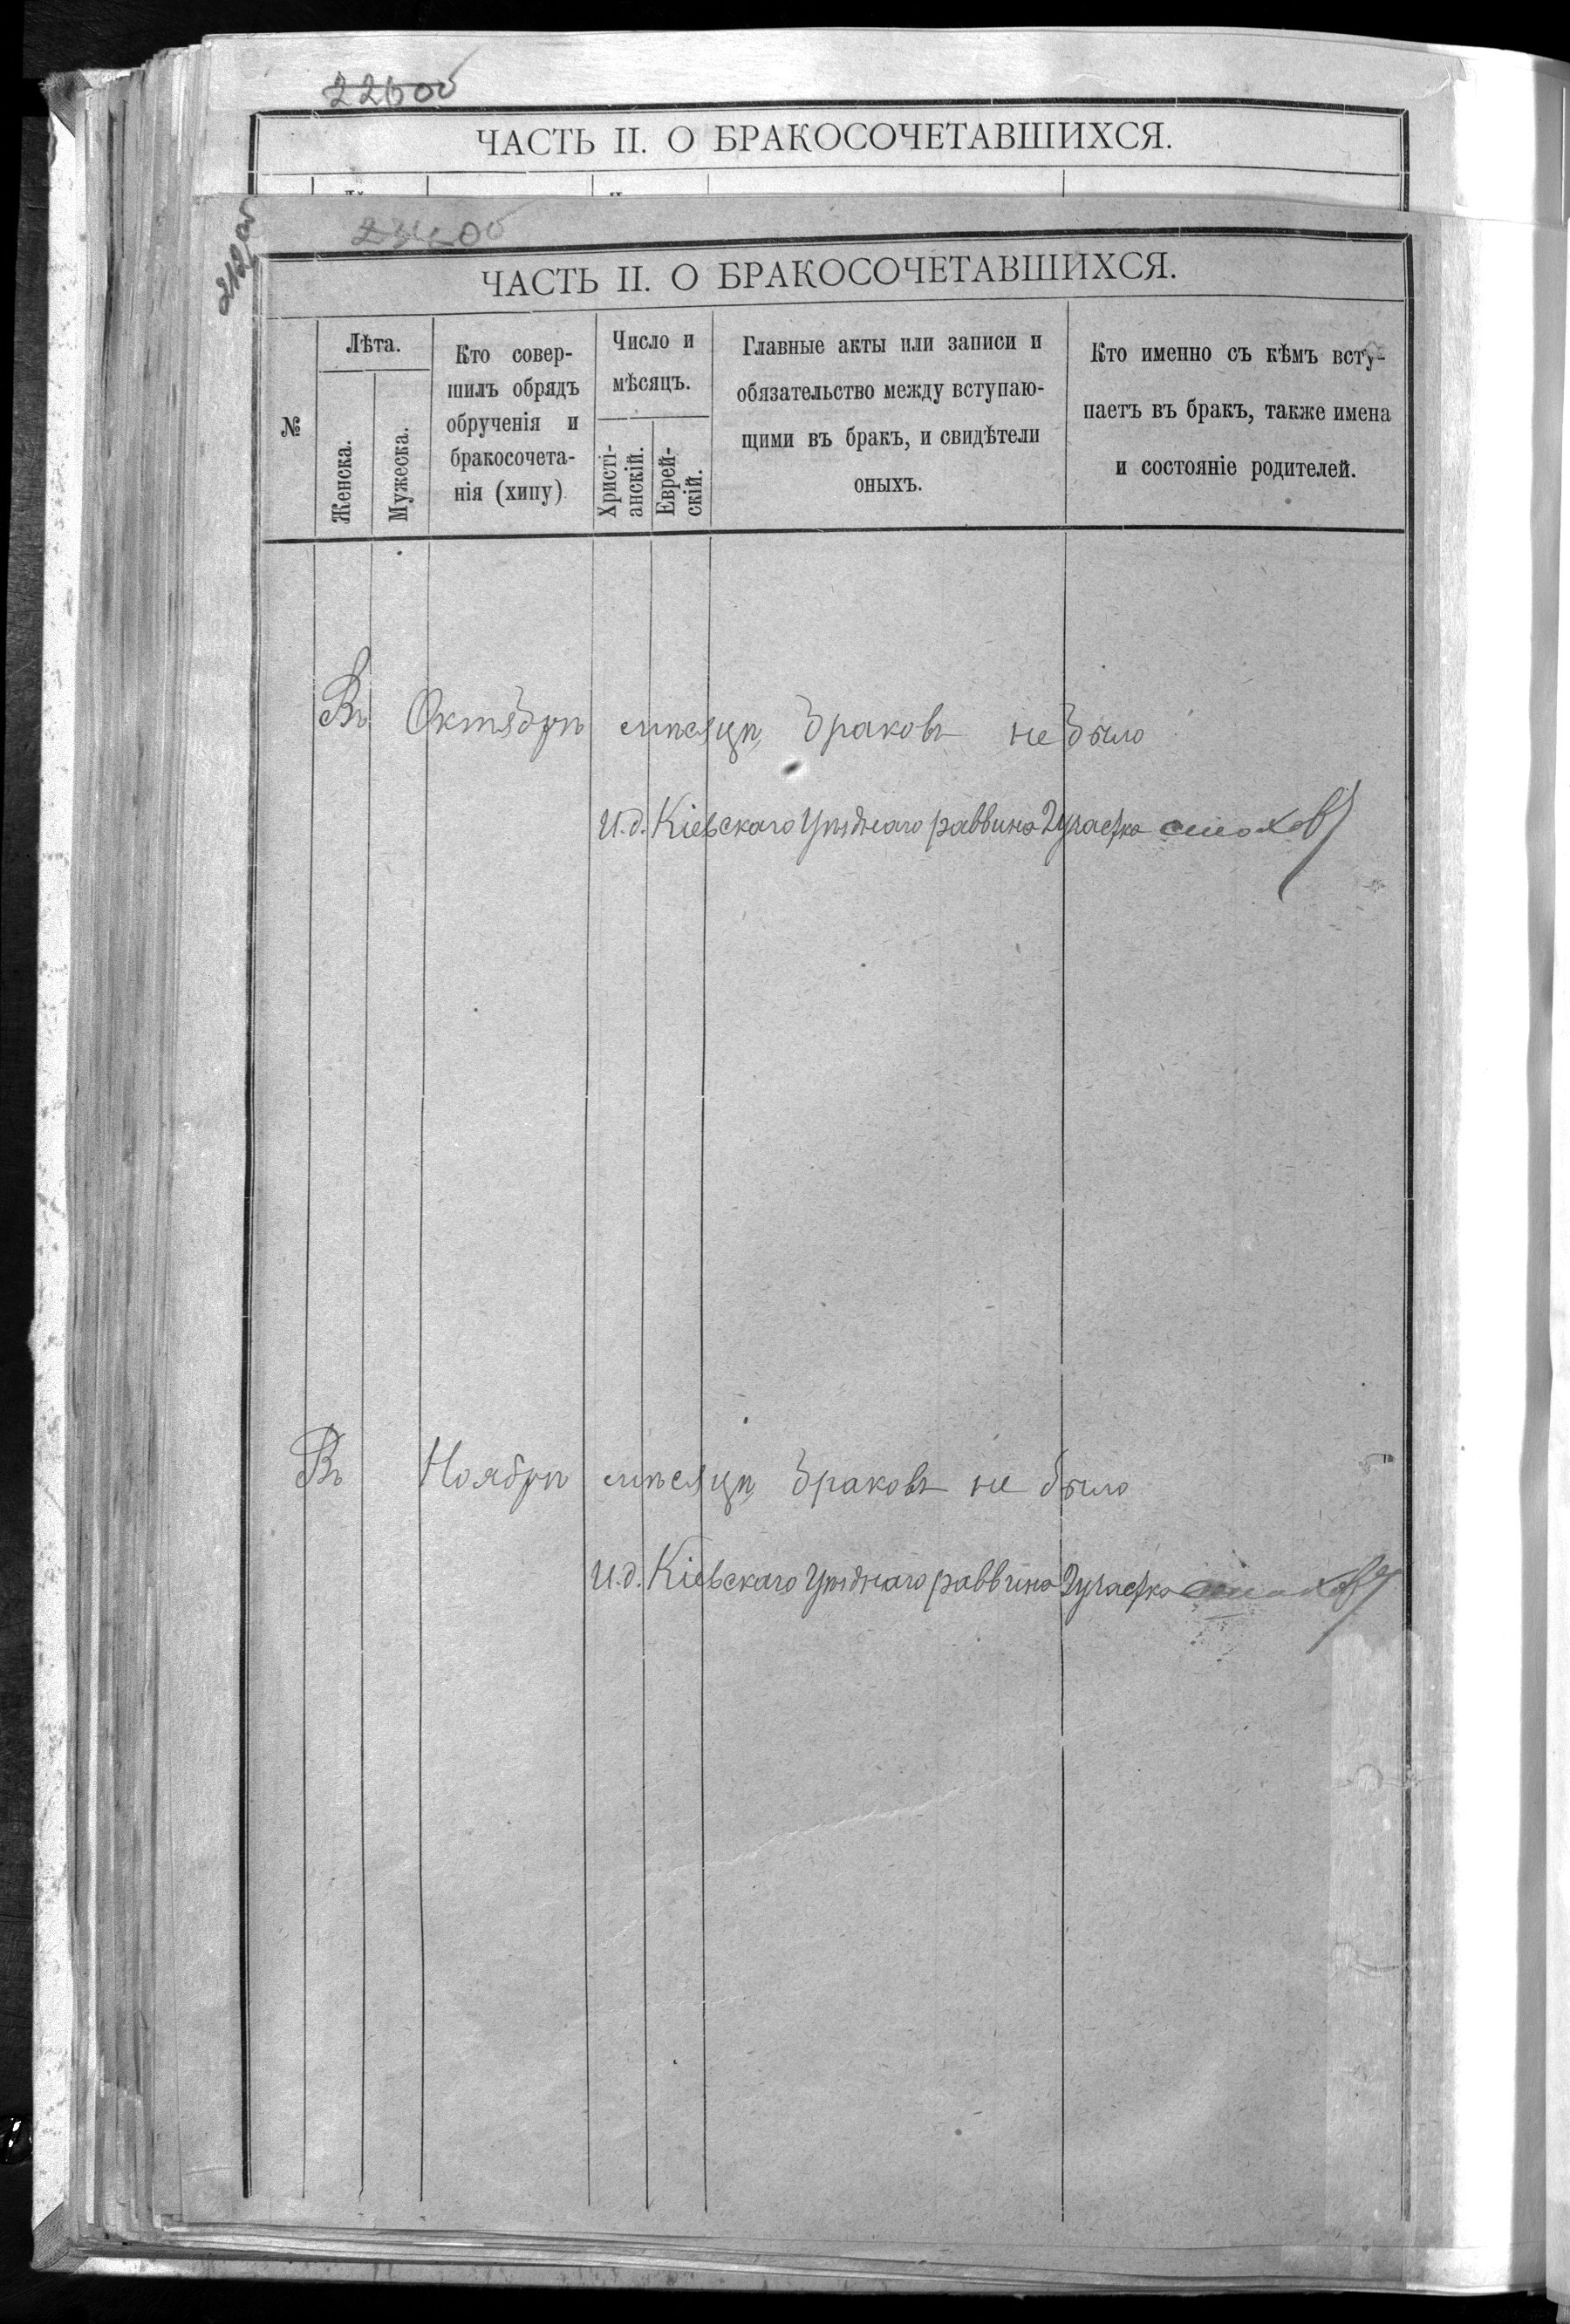 22600
ЧАСТЬ II. О БРАКОСОЧЕТАВШИХСЯ.
ЧАСТЬ II. О БРАКОСОЧЕТАВШИХСЯ.
№
Лѣта.
Женска.
Мужеска.
Кто совер-
шилъ обрядъ
обрученія и
бракосочета-
нія (хипу)
Число и
мѣсяцъ.
Христі-
анскій.
Еврей-
скій.
Главные акты или записи и
обязательство между вступаю-
щими въ бракъ, и свидѣтели
оныхъ.
Кто именно съ кѣмъ всту-
паетъ въ бракъ, также имена
и состояніе родителей.
Въ Октябрѣ мѣсяцѣ браковъ не было
И.д. Кіевскаго Уѣзднаго раввина 2 участка
Въ Ноябрѣ мѣсяцѣ браковъ не было
И.д. Кіевскаго Уѣзднаго раввина 2 участка